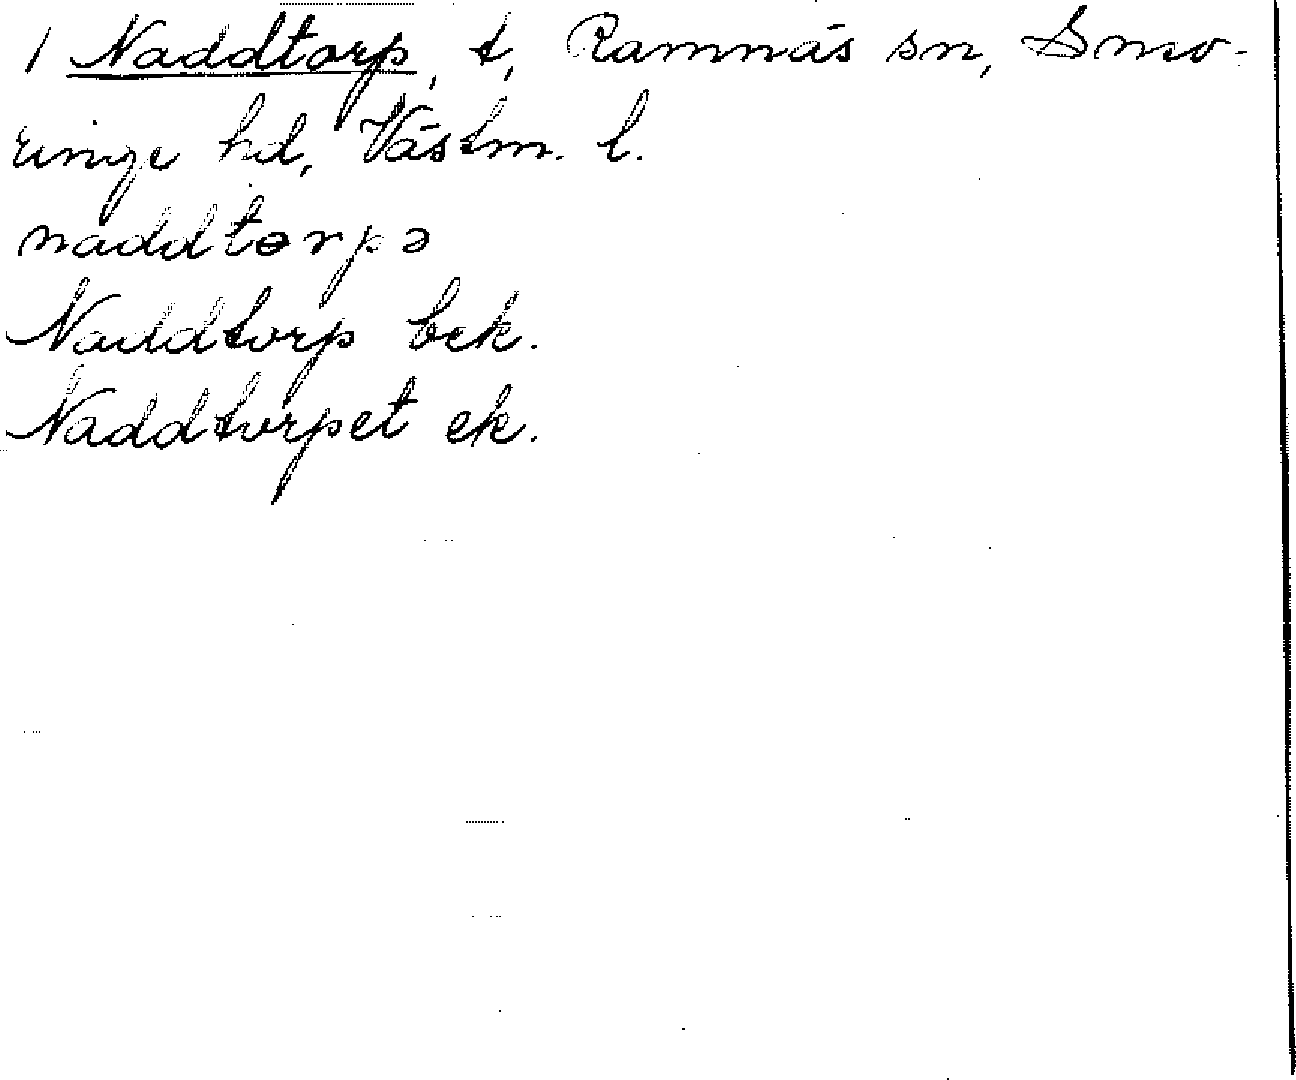 1 Naddtorp, t, Ramnäs sn, Snev-
ringe hd, Västm. l.
naddtɵrpə
Naddtorp bek.
Naddtorpet ek.